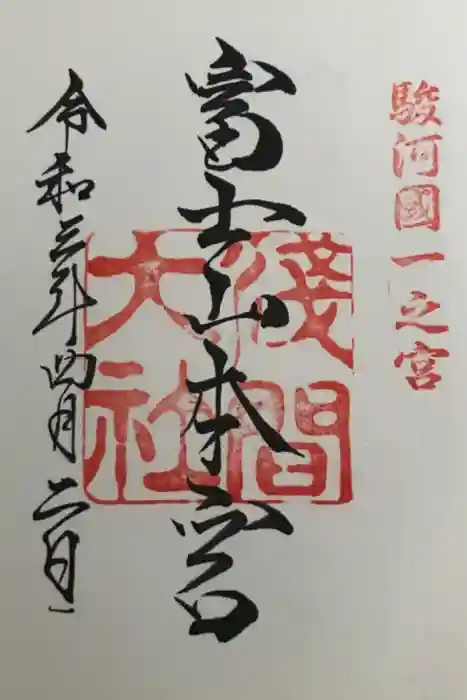 駿河國一之宮
富士山本宮
淺間大社
令和三年四月二日